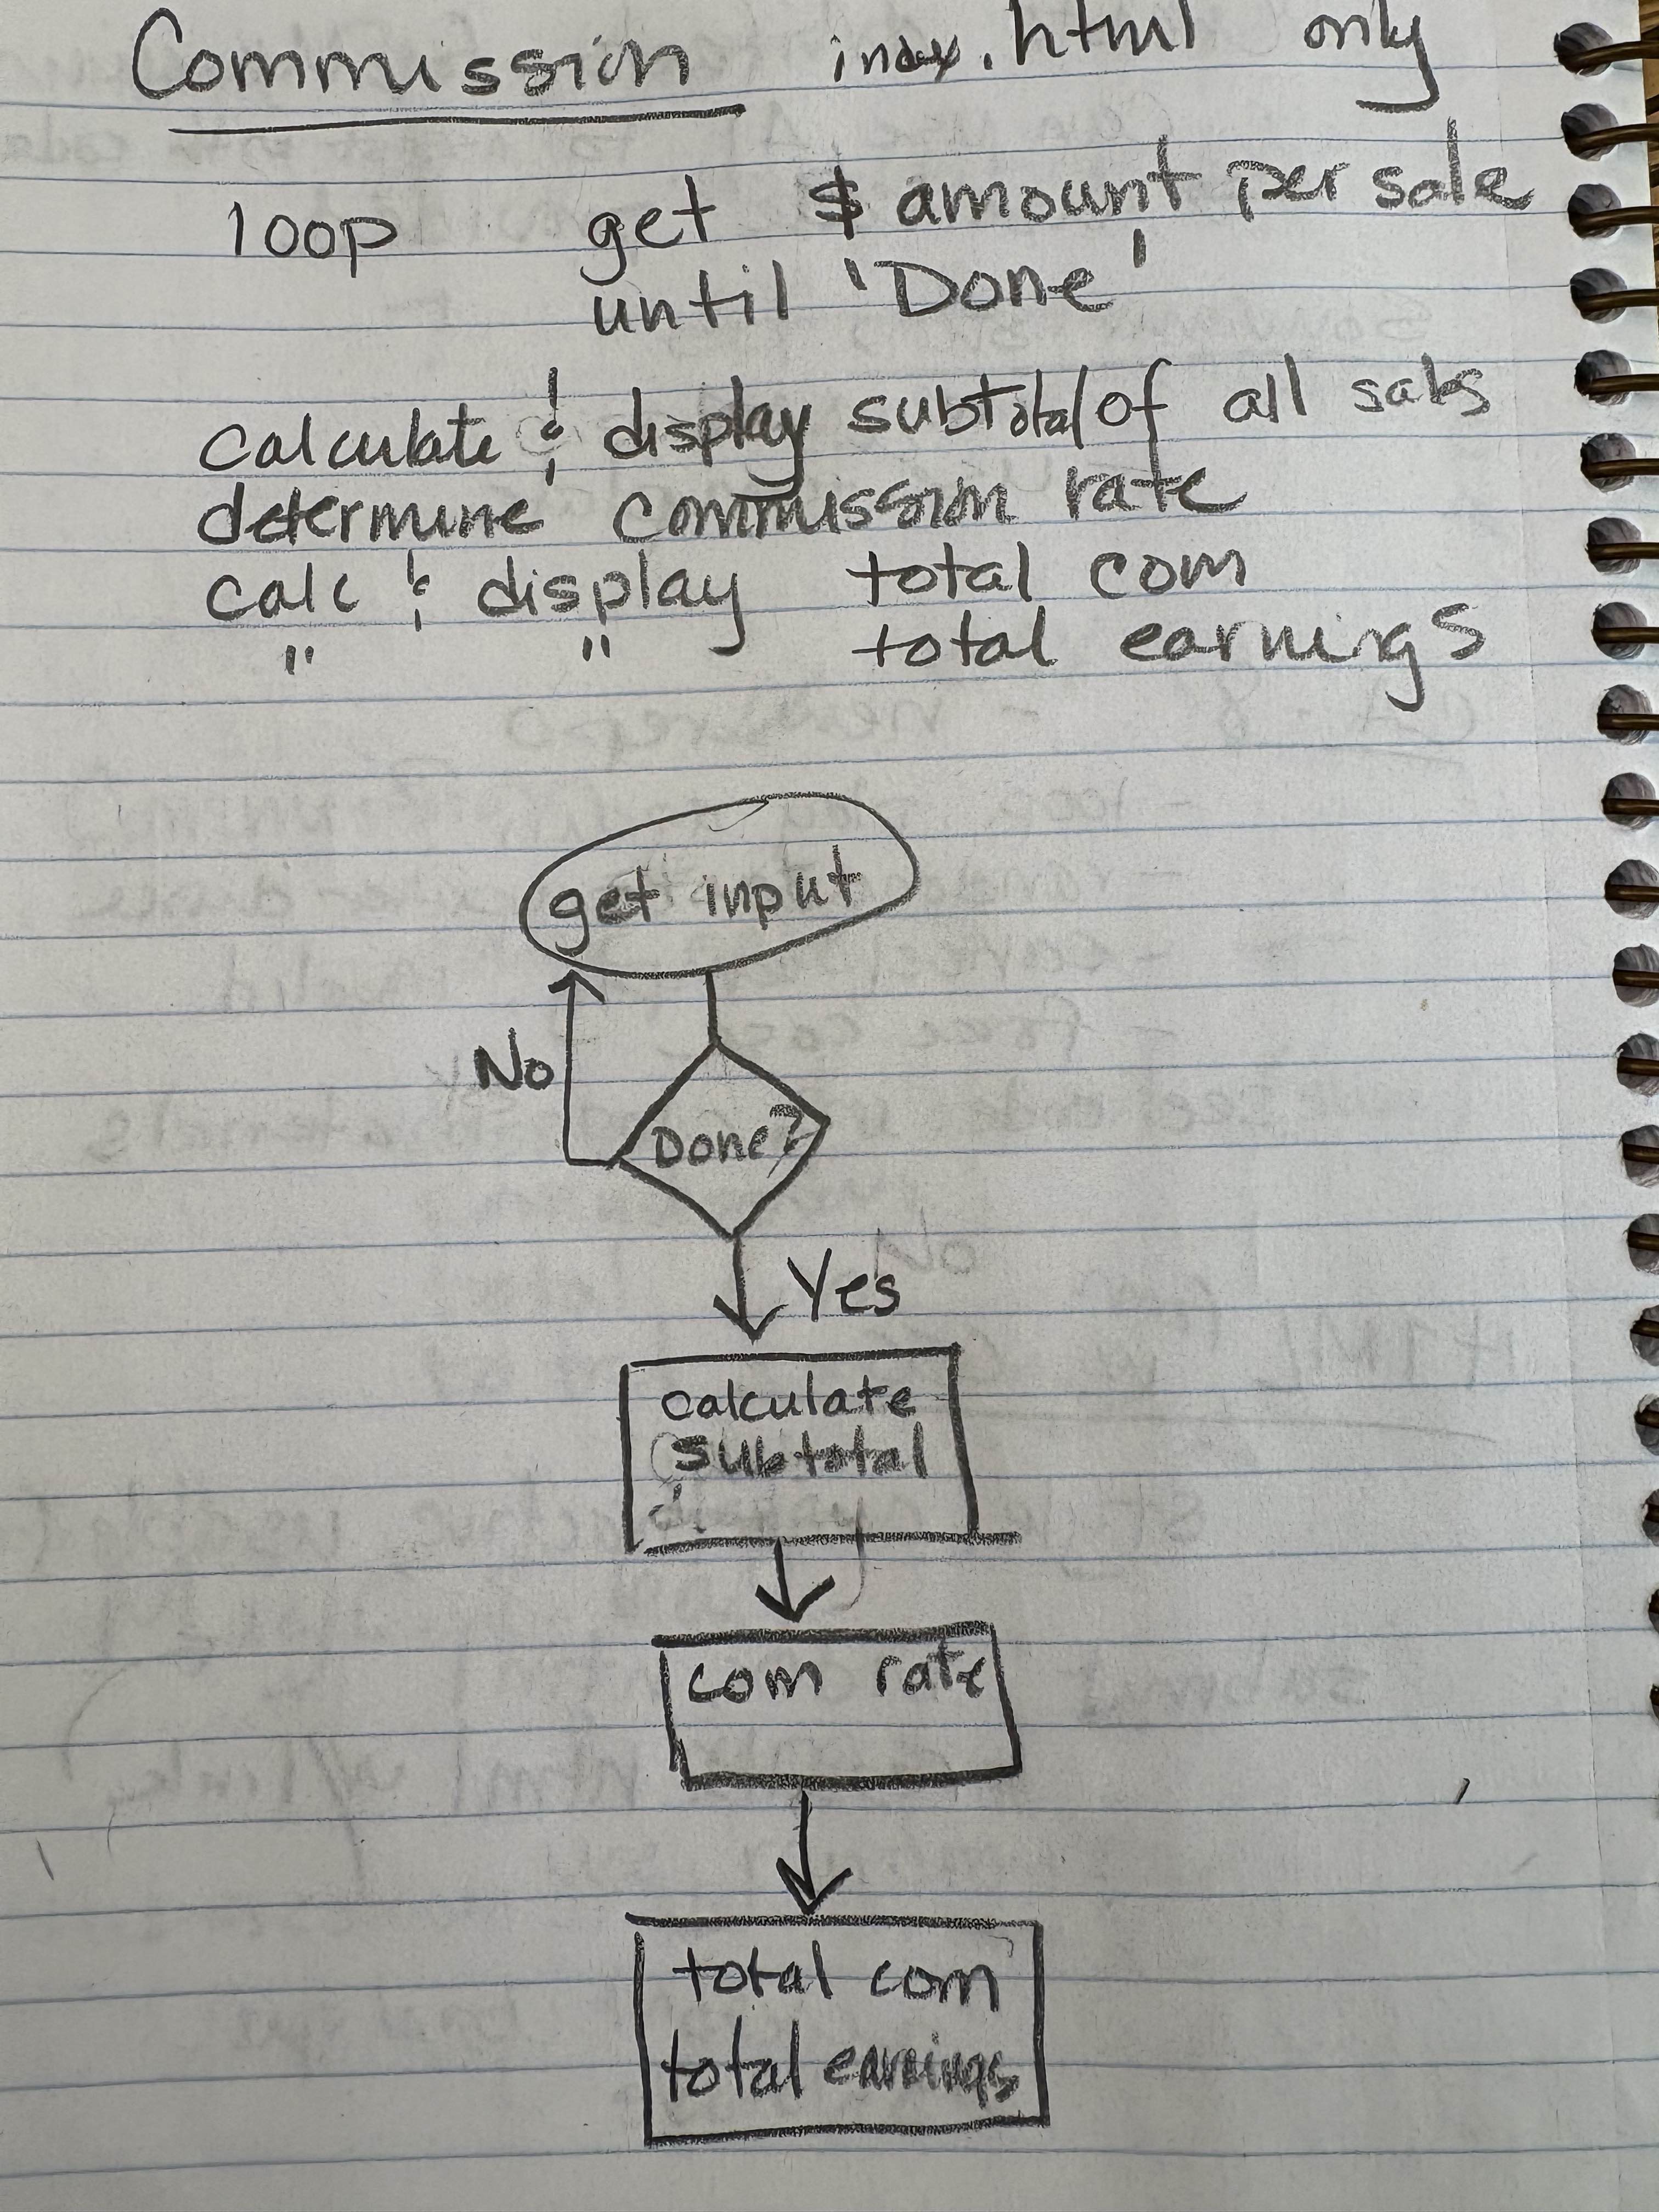 Commission index.html only
loop get $ amount per sale
until 'Done'
calculate & display subtotal of all sales
determine commission rate
calc & display total com
" " total earnings
get input
No
Done?
Yes
calculate
subtotal
com rate
total com
total earnings